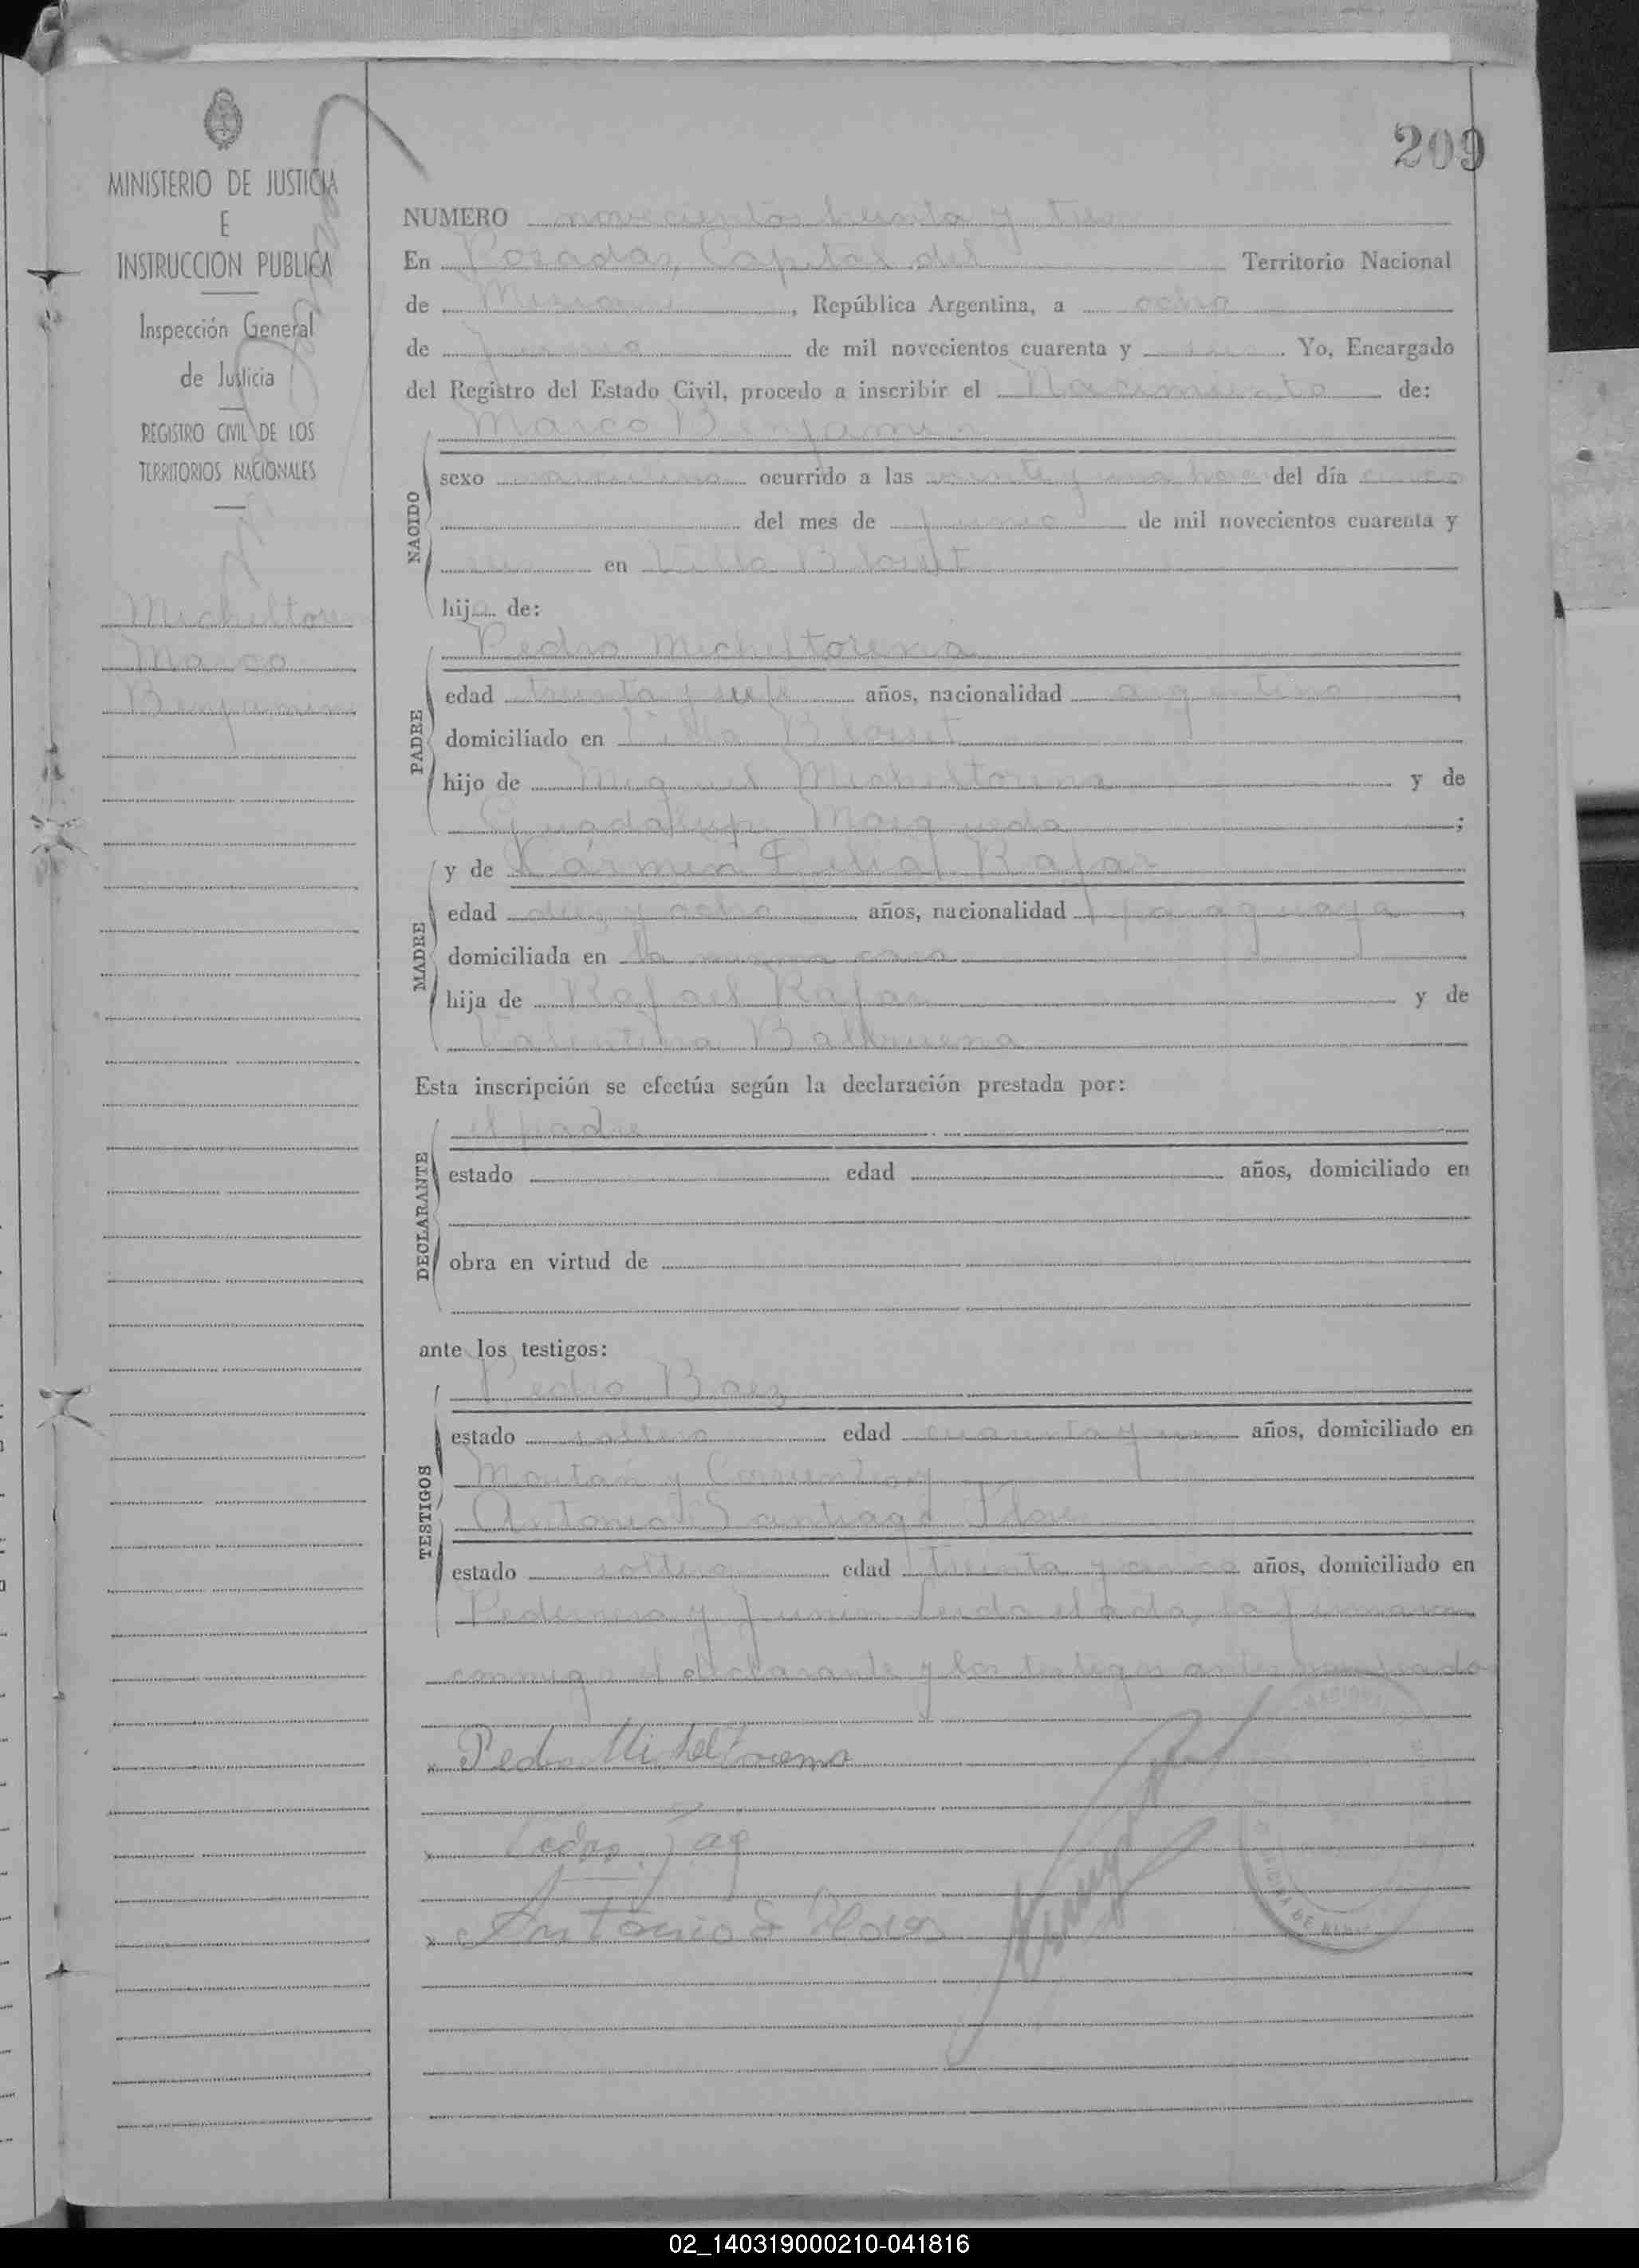 209
MINISTERIO DE JUSTICIA
E
INSTRUCCION PUBLICA
Inspección General
de Justicia
REGISTRO CIVIL DE LOS
TERRITORIOS NACIONALES
Micheltore
Marco
Benjamin
NUMERO novecientos treinta y tres
En Posadas, Capital del Territorio Nacional
de Misiones, República Argentina, a ocho
de Junio de mil novecientos cuarenta y seis. Yo, Encargado
del Registro del Estado Civil, procedo a inscribir el Nacimiento de:
NACIDO
Marco Benjamin
sexo masculino ocurrido a las veinte y una hora del día cinco
del mes de Junio de mil novecientos cuarenta y
seis en Villa Blosset
hijo de:
PADRE
Pedro Micheltorena
edad treinta y seis años, nacionalidad argentino
domiciliado en Villa Blosset
hijo de Miguel Micheltorena y de
Guadalupe Maiqueda;
MADRE
y de Cármen Delia Rafar
edad diez y ocho años, nacionalidad paraguaya
domiciliada en la misma casa
hija de Rafael Rafar y de
Valentina Balbuena
Esta inscripción se efectúa según la declaración prestada por:
DECLARANTE
el padre
estado edad años, domiciliado en
obra en virtud de
ante los testigos:
TESTIGOS
Pedro Baez
estado soltero edad cuarenta y un años, domiciliado en
y Corrientes y
Antonio Santiago Flores
estado soltero edad treinta y cinco años, domiciliado en
Pedernera y Junin Leida el acta, la firmaron
conmigo el declarante y los testigos antes nombrados
x Pedro Micheltorena
x
x Antonio S Flores
02_140319000210-041816